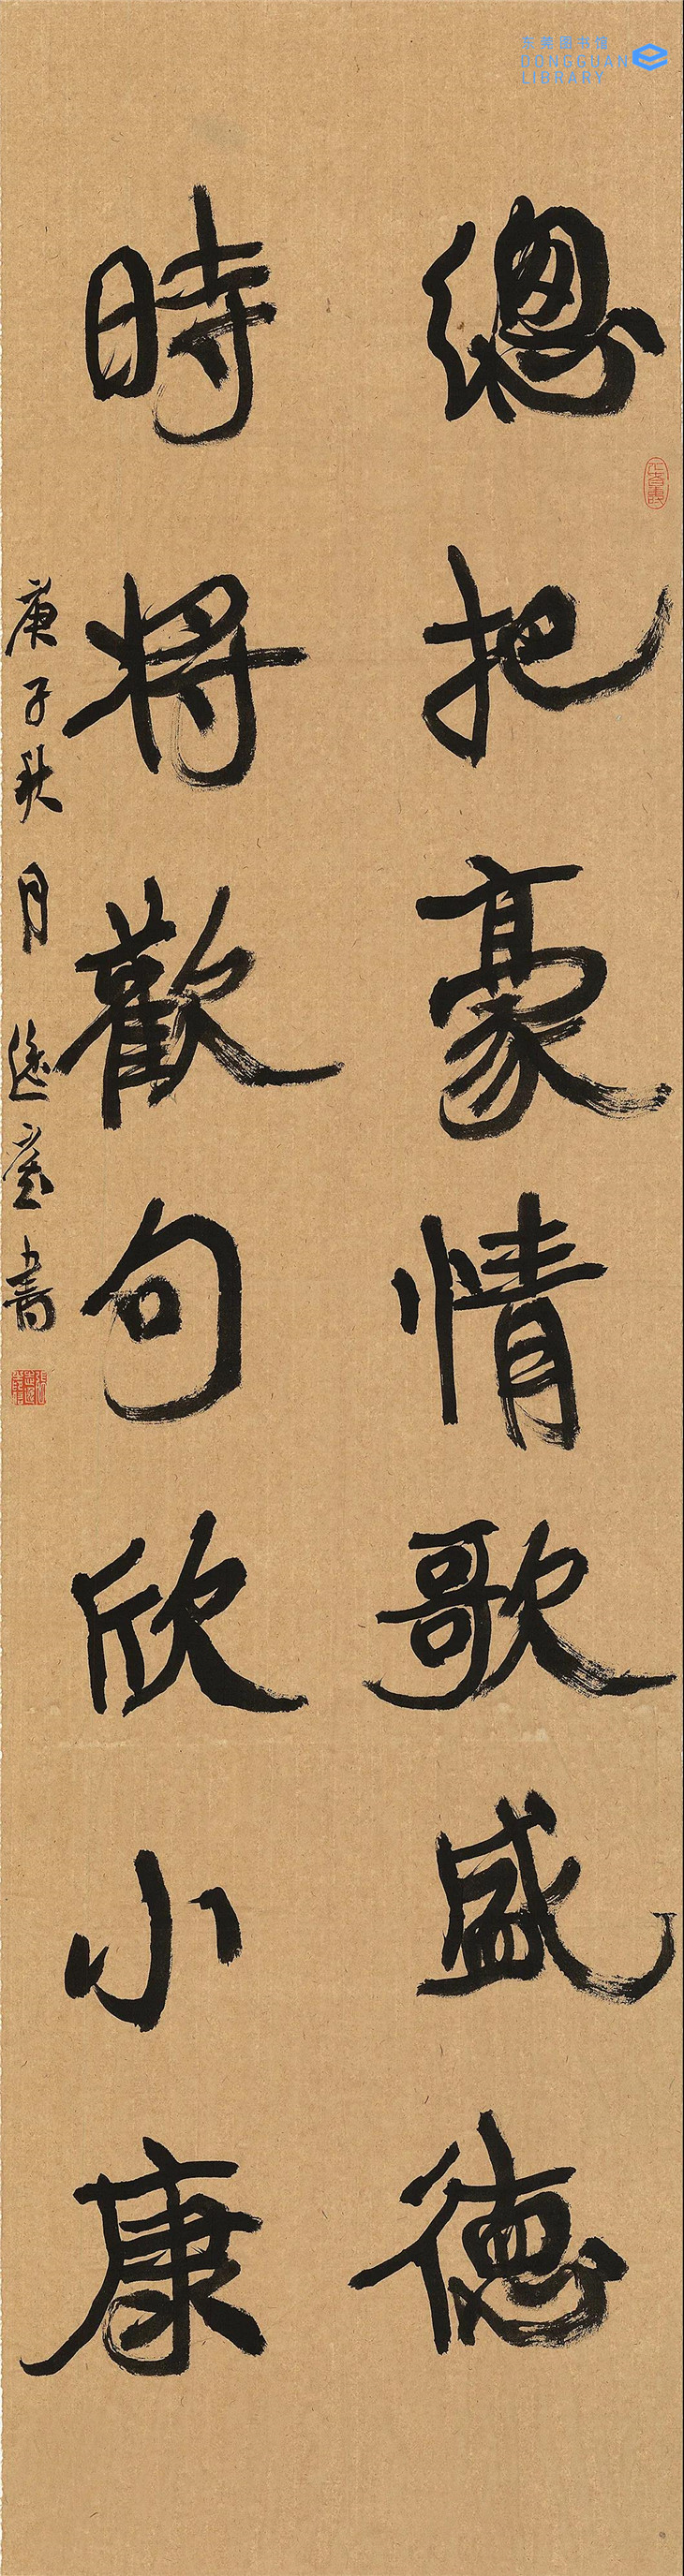 东莞图书馆
DONGGUAN
LIBRARY
總把豪情歌盛德
時將歡句欣小康
庚子秋月
書